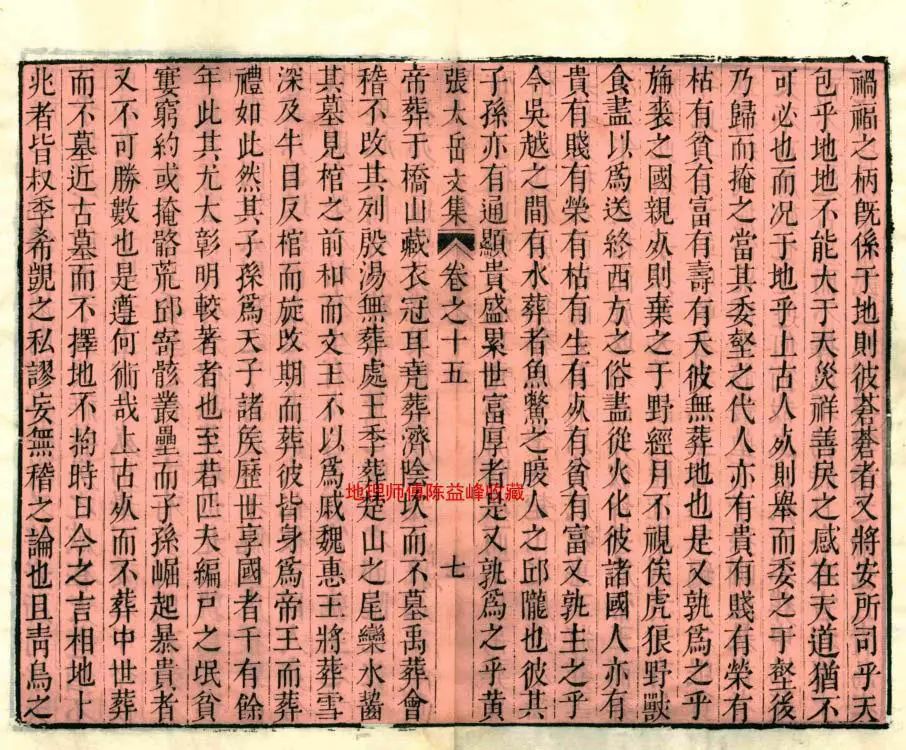 禍福之柄旣係于地則彼蒼蒼者又將安所司乎天
包乎地地不能大于天災祥善戾之感在天道猶不
可必也而况于地乎上古人死則舉而委之于壑後
乃歸而掩之當其委壑之代人亦有貴有賤有榮有
枯有貧有富有壽有夭彼無葬地也是又孰爲之乎
旃裘之國親死則棄之于野經月不視俟虎狼野獸
食盡以爲送終西方之俗盡從火化彼諸國人亦有
貴有賤有榮有枯有生有死有貧有富又孰主之乎
今吳越之間有水葬者魚鱉之腹人之邱隴也彼其
子孫亦有通顯貴盛累世富厚者是又孰爲之乎黃
張太岳文集 卷之十五 七
帝葬于橋山藏衣冠耳堯葬濟陰坎而不墓禹葬會
稽不改其列殷湯無葬處王季葬楚山之尾欒水齧
其墓見棺之前和而文王不以爲戚魏惠王將葬雪
深及牛目反棺而旋改期而葬彼皆身爲帝王而葬
禮如此然其子孫爲天子諸矦歷世享國者千有餘
年此其尤大彰明較著者也至若匹夫編戸之氓貧
寠窮約或掩骼荒邱寄骸叢壘而子孫崛起暴貴者
又不可勝數也是遵何術哉上古死而不葬中世葬
而不墓近古墓而不擇地不拘時日今之言相地卜
兆者皆叔季希覬之私謬妄無稽之論也且靑烏之
地理师傅陈益峰收藏